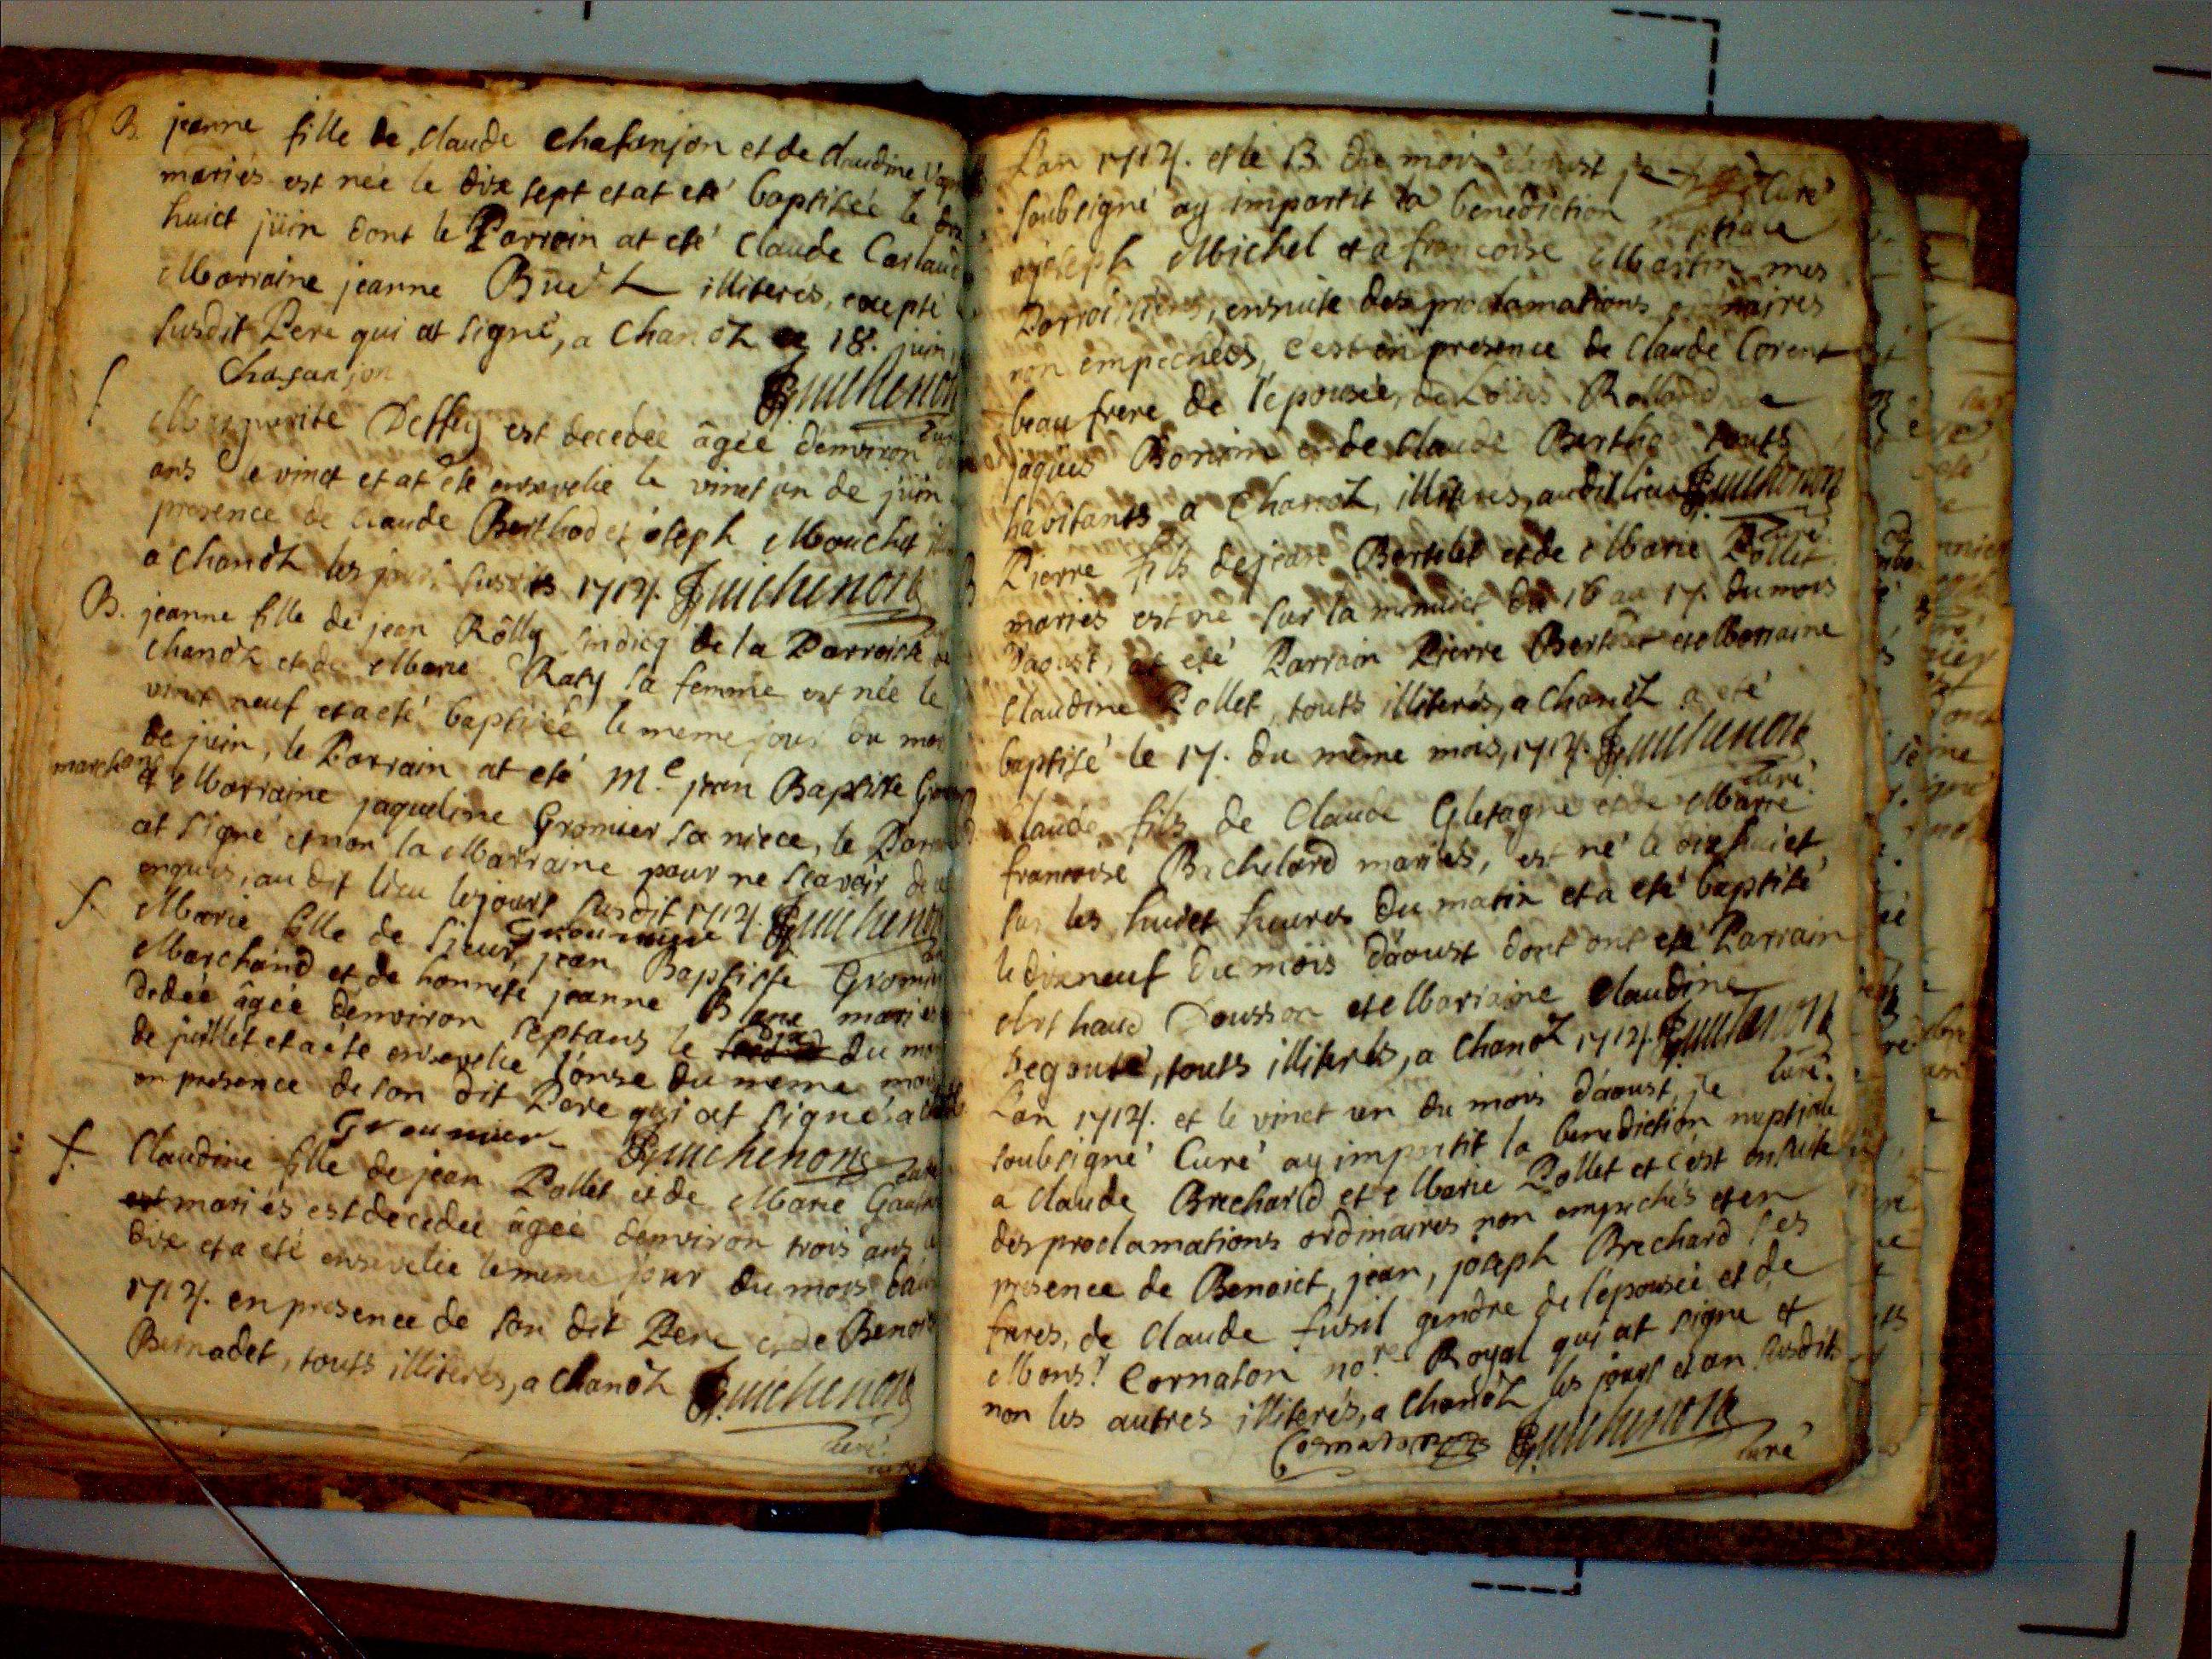 B. jeanne fille de Claude Chafanjon et de Claudine
mariés est née le dix sept et at eté baptisée le dix
huict juin dont le Parroin at eté Claude
Marraine jeanne illiterés, excepté
susdit Pere qui at signé, a Chanoz ce 18. juin
Chafanjon
Guichenon
f Marguerite est decedée âgée denviron
ans le vinct et at eté ensevelie le vinct un de juin
presence de Claude Berthod et joseph Mouchet
a Chanoz les jours susdits 1714. Guichenon
B. jeanne fille de jean Rolly sindicq de la Parroisse de
Chanoz et de Marie Raty sa femme est née le
vinct neuf et a eté baptisée le meme jour du mois
de juin, le Parrain at eté Me jean Baptiste
marchand
et Marraine jaqueline Gromier sa niece, le Parrain
at signé et non la Marraine pour ne sçavoir de ce
enquis, au dit lieu les jours susdit 1714. Guichenon
f. Marie fille de sieur jean Baptiste Gromier
Marchand et de honneste jeanne mariés
dedée âgée denviron septans le dix du mois
de juillet et a eté ensevelie l'onse du meme mois
en presence de son dit Pere qui at signé a
Groumier Guichenon curé
f. Claudine fille de jean Pollet et de Marie
mariés est decedée âgée denviron trois ans le
dix et a eté ensevelie le meme jour du mois
1714. en presence de son dit Pere et de Benoict
Bernadet, touts illiterés, a Chanoz Guichenon
curé
L'an 1714. et le 13. du mois d'aoust je curé
soubsigné ay impartit la benediction nuptiale
a joseph Michel et a françoise Martin mes
Parroissiens, ensuite des proclamations ordinaires
non empechées, c'est en presence de Claude Corent
beau frere de l'epousée, de Loüis Rolland
jaques et de Claude Berthod touts
habitants a Chanoz, illiterés, audit lieu Guichenon
curé
Pierre fils de jean Bertelet et de Marie Pollet
mariés est né sur la minuict du 16 au 17. du mois
d'aoust, at eté Parrain Pierre et Marraine
Claudine Pollet, touts illiterés, a Chanoz a eté
baptisé le 17. du même mois, 1714. Guichenon
curé
Claude fils de Claude Gletagne et de Marie
francoise Bichelard mariés, est né le dix huict
sur les huict heures du matin et a eté baptisé
le dixneuf du mois d'aoust dont ont eté Parrain
Dousson et Marraine Claudine
touts illiterés, a Chanoz 1714. Guichenon
curé.
L'an 1714. et le vinct un du mois d'aoust, je
soubsigné Curé ay impartit la benediction nuptiale
a Claude Brechard et Marie Pollet et c'est ensuite
des proclamations ordinaires non empechés et en
presence de Benoict, jean, joseph Brechard ses
freres, de Claude fusil gendre de l'epousée et de
Monsr Cornaton nore Royal qui at signe et
non les autres illiterés, a Chanoz les jours et an susdits
Cornaton Guichenon
curé